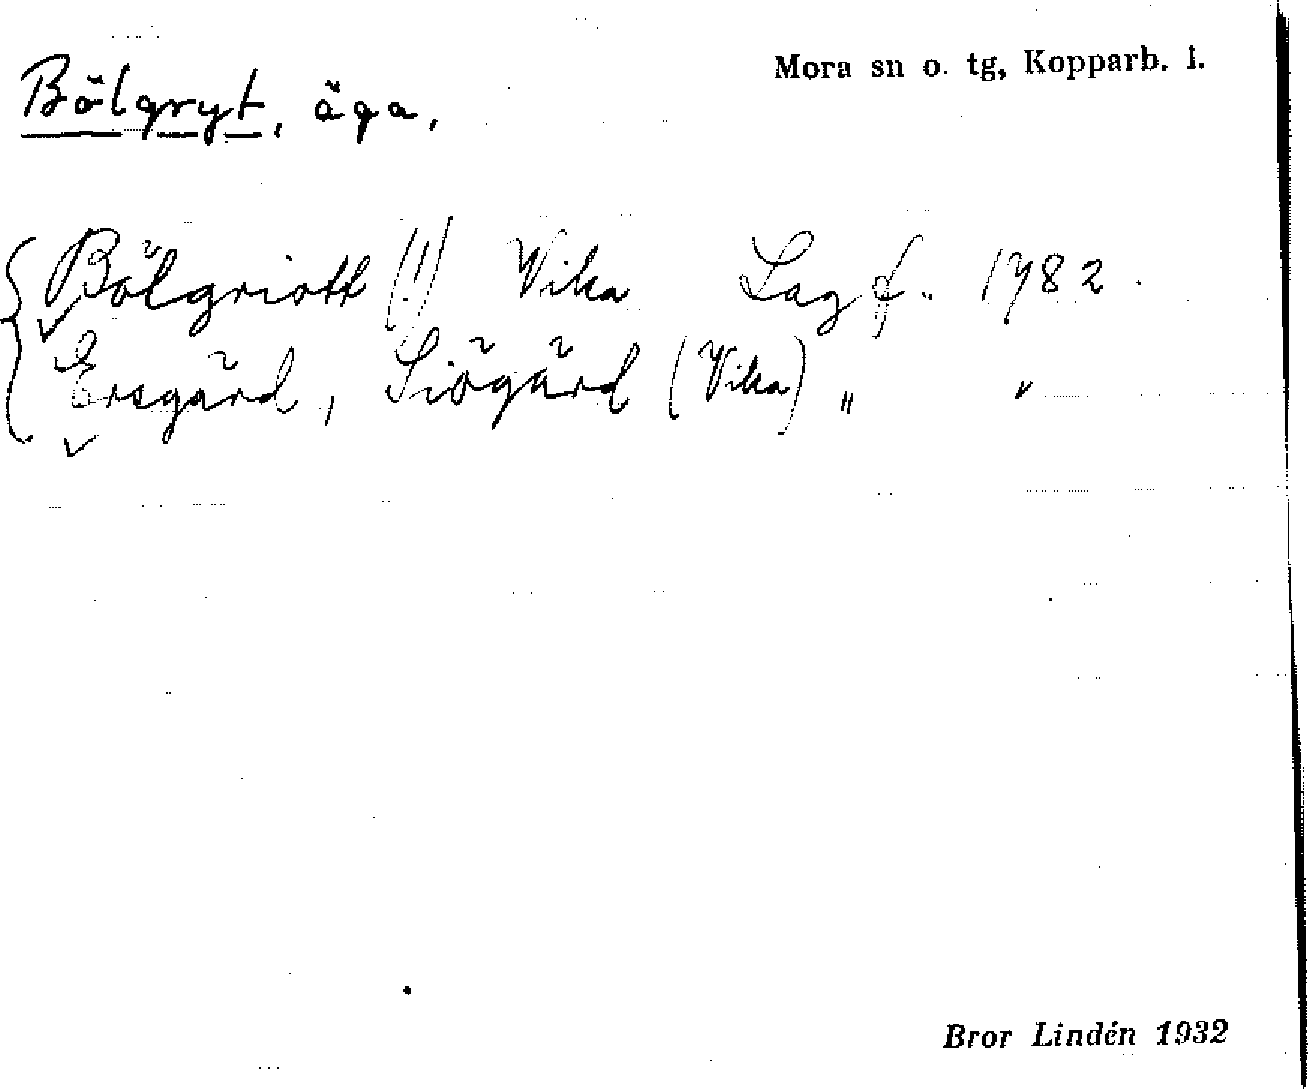 Mora sn o. tg, Kopparb. l.
Bölgryt, äga.
Bölgriott (!) Vika Lagf. 1782.
Ersgård, Siögård (Vika) " "
Bror Lindén 1932